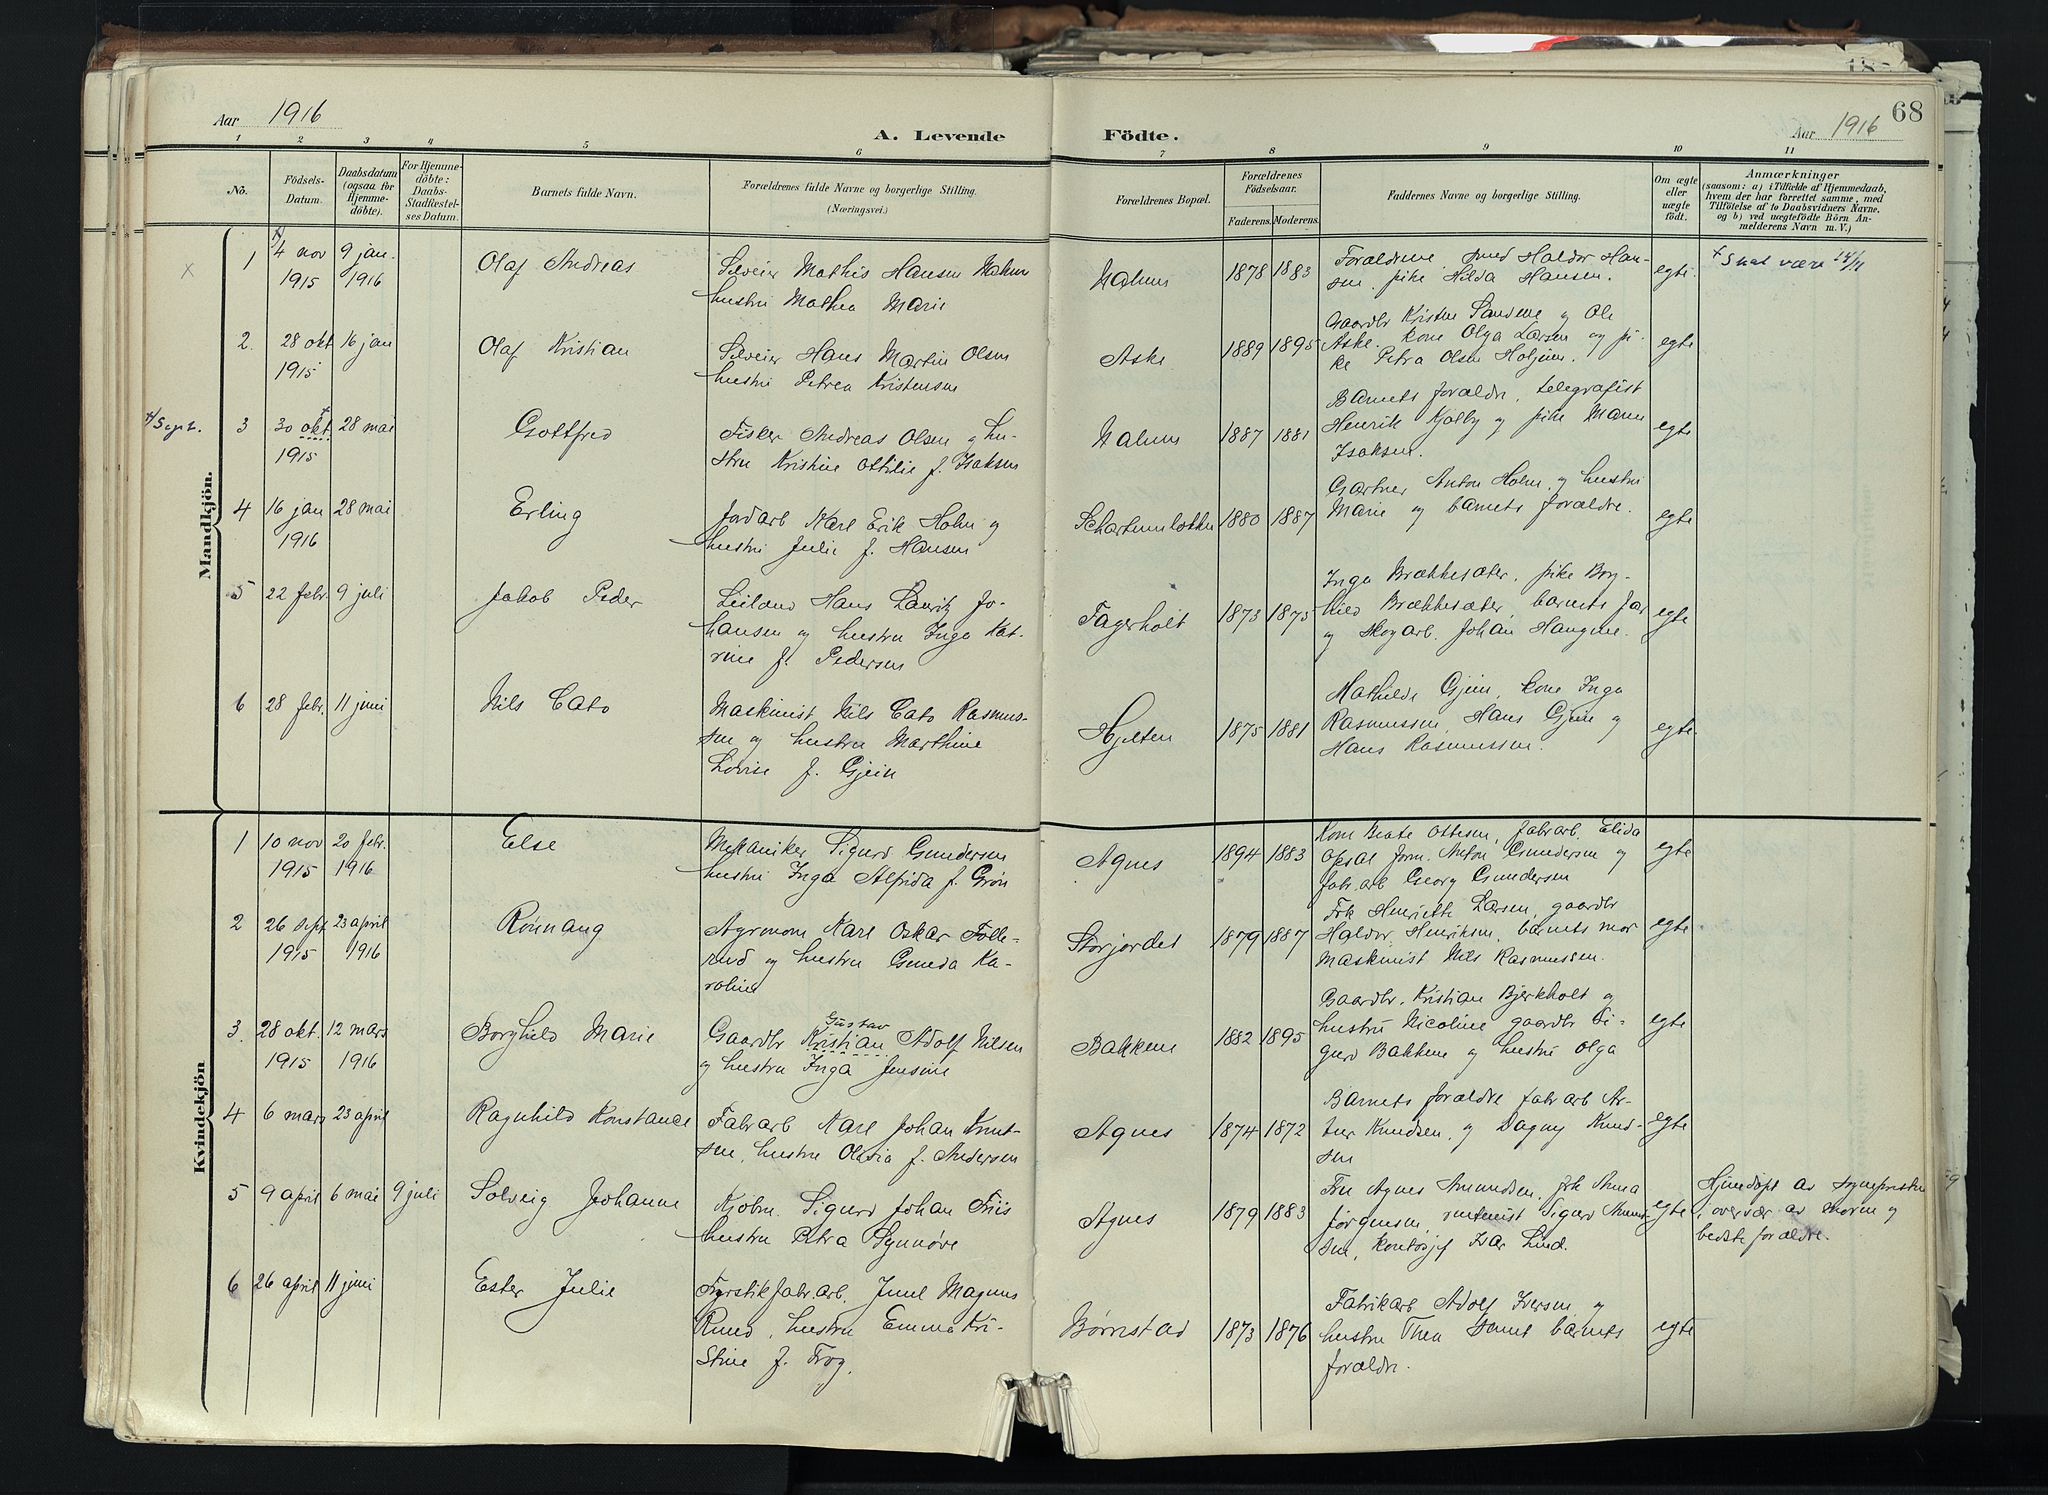 Aar 1916
A. Levende Födte.
Aar 1916
68
1 2 3 4 5 6 7 8 9 10 11
No.
Födsels-Datum.
Daabsdatum (ogsaa for Hjemmedöbte).
For Hjemmedöbte: Daabs-Stadfæstelses Datum.
Barnets fulde Navn.
Forældrenes fulde Navne og borgerlige Stilling.
(Næringsvei.)
Forældrenes Bopæl.
Forældrenes Födselsaar.
Faderens. Moderens.
Faddernes Navne og borgerlige Stilling.
Om ægte eller uægte födt.
Anmærkninger
(saasom: a) i Tilfælde af Hjemmedaab, hvem der har forrettet samme, med Tilföielse af to Daabsvidners Navne. og b) ved uægtefödte Börn Anmelderens Navn m. V.)
Mandkjön.
1
4 nov 1915
9 jan. 1916
Olaf Andreas
Mathis Hansen
hustru Mathea Marie
1878 1883
Forældrene, smed Haldor Han-
sen, pike Hilda Hansen.
egte
+ skal være
2.
28 okt 1915
16 jan
Olaf Kristian
Hans Martin Olsen
hustru Petrea Kristensen
Aske
1889 1895
Gaardbr Kristen Sandene og Ole
Aske. kone Olga Larsen og pi-
ke Petra Olsen
egte
+/ Sept.
3
30 okt. 1915
28 mai
Gottfred
Fisker Andreas Olsen og hu-
stru Kristine Ottilie f. Isaksen
1887 1881
Barnets forældre, telegrafist
Henrik og pike
Isaksen.
egte
4
16 jan 1916
28 mai
Erling
Jordarb Karl Erik Holm og
hustru Julie f. Hansen
1880 1887
Gartner Anton Holm og hustru
Marie og barnets forældre.
egte
5
22 febr.
9 juli
Jakob Peder
Hans Lauritz Jo-
hansen og hustru Inga Kat-
rine f. Pedersen
Fagerholt
1873 1875
Inga Brækkesæter, pike Borg-
hild Brækkesæter, barnets far
og skogarb. Johan
egte
6
28 febr.
11 juni
Nils Cato
Maskinist Nils Cato Rasmus-
sen og hustru Marthine
Lovise f. Gjein
Hjelten
1875 1881
Mathilde Gjein, kone Inga
Rasmussen, Hans Gjein og
Hans Rasmussen.
egte
Kvindekjön
1
10 nov 1915
20 febr. 1916
Else
Mekaniker Sigurd Gundersen
hustru Inga Alfida f. Grøn
Agnes
1894 1883
Kone Beate Ottesen, fabr.arb. Elida
Opsal, form. Anton Gundersen og
fabr.arb Georg Gundersen
egte
2
26 sept 1915
23 april 1916
Rønnaug
Agronom Karl Oskar Folle-
rud og hustru Gunda Ka-
roline
Storjordet
1879 1887
Frk Henriette Larsen, gaardbr
Haldor Henriksen, barnets mor
maskinist Nils Rasmussen.
egte
3.
28 okt. 1915
12 mars 1916
Borghild Marie
Gustav
Gaardbr Kristian Adolf Nilsen
og hustru Inga Jensine
Bakkene
1882 1895
Gaardbr. Kristian Bjerkholt og
hustru Nicoline gaardbr Si-
gurd Bakkene og hustru Olga
egte
4
6 mars
23 april
Ragnhild Konstance
Fabr arb Karl Johan Knut-
sen, hustru Olivia f. Andersen
Agnes
1874 1872
Barnets forældre fabr arb Ar-
tur Knudsen, og Dagny Knud-
sen
egte
5
9 april
6 mai
9 juli
Solveig Johanne
Kjøbm. Sigurd Johan Friis
hustru Petra Synnøve
Agnes
1879 1883
Fru Agnes Amundsen, frk Anna
Jørgensen, Sigurd Amund-
sen, kontorsjef Ivar Lind.
egte
Hjemdøpt av sognepresten
i overvær av moren og
bedsteforældre.
6
26 april
11 juni
Ester Julie
Fyrstikfabr.arb. Juul Magnus
Ruud, hustru Emma Kri-
stine f. Frog.
Børnstad
1873 1876
Fabrikarb Adolf Iversen og
hustru Thea samt barnets
forældre.
egte